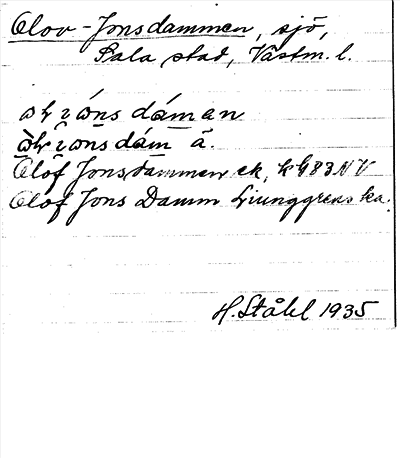 Olov-Jonsdammen, sjö,
Sala stad, Västm. l.
dáman
dám ä.
Olof Jonsdammen ek, kb 83 NV
Olof Jons Damm Ljunggrens ka.
H. Ståhl 1935